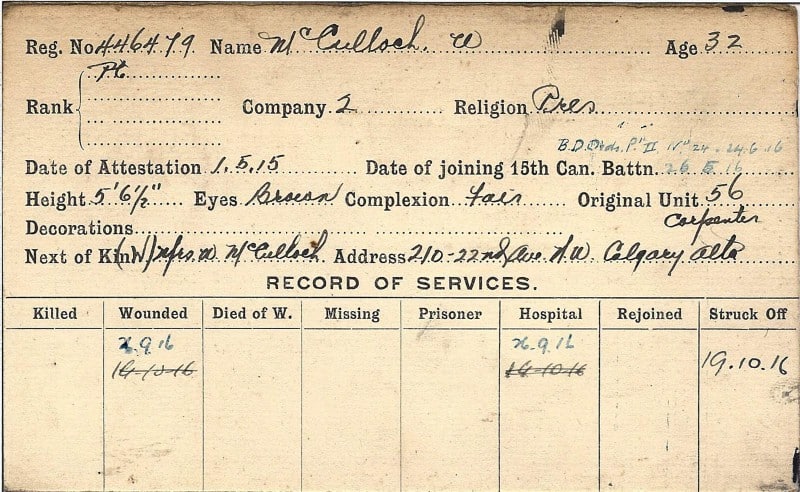 Reg. No 446479 Name McCulloch. W Age 32
Pte
Rank Company 2 Religion Pres
B.D. Ords. Pt II No 24 - 24.6.16
Date of Attestation 1.5.15 Date of joining 15th Can. Battn. 26 5 16
Height 5'6½" Eyes Brown Complexion Fair Original Unit 56
Decorations Carpenter
Next of Kin (W) Mrs W McCulloch Address 210-22nd Ave N.W. Calgary Alta
RECORD OF SERVICES.
Killed Wounded Died of W. Missing Prisoner Hospital Rejoined Struck Off
9 16 9 16
19-10-16 19-10-16 19.10.16